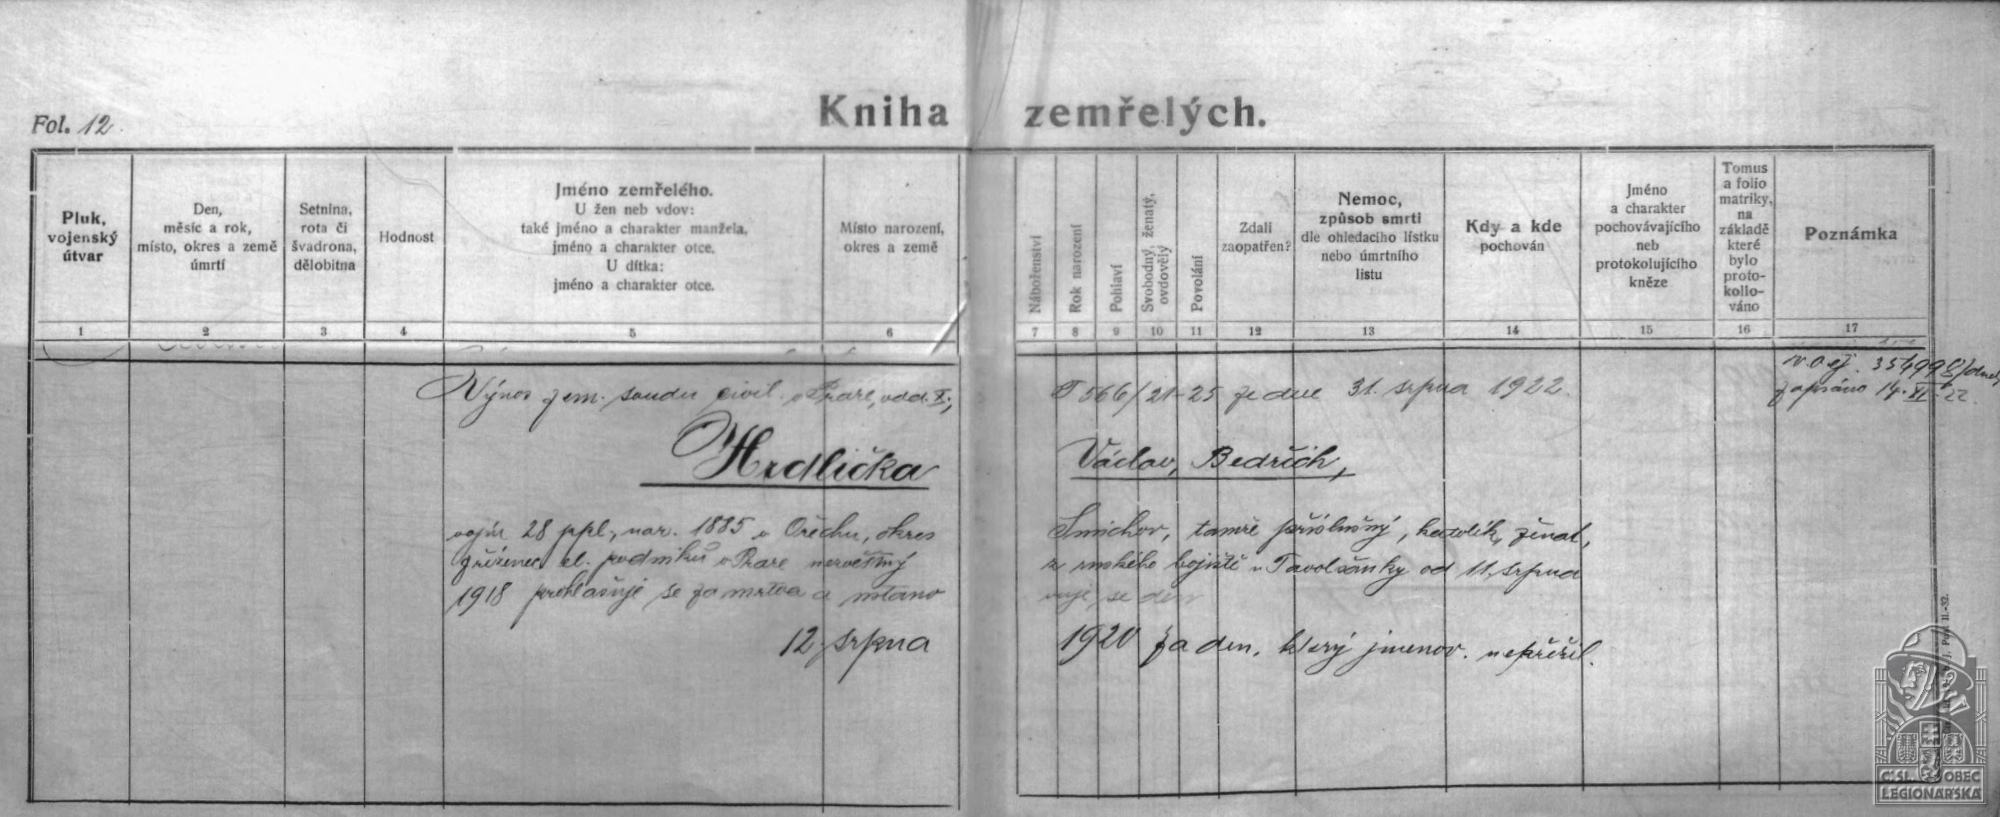 Fol. 12.
Kniha zemřelých.
Pluk, vojenský útvar
Den, měsíc a rok, místo, okres a země úmrtí
Setnina, rota či švadrona, dělobitna
Hodnost
Jméno zemřelého.
U žen neb vdov:
také jméno a charakter manžela,
jméno a charakter otce.
U dítka:
jméno a charakter otce.
Místo narození, okres a země
Náboženství
Rok narození
Pohlaví
Svobodný, ženatý, ovdovělý
Povolání
Zdali zaopatřen?
Nemoc, způsob smrti dle ohledacího lístku nebo úmrtního listu
Kdy a kde pochován
Jméno a charakter pochovávajícího neb protokolujícího kněze
Tomus a folio matriky, na základě které bylo protokollováno
Poznámka
1 2 3 4 5 6 7 8 9 10 11 12 13 14 15 16 17
354998/
zapsáno 14. XI. 22.
Výnos zem. soudu civil. v Praze, odd. X., T 566/21-25 ze dne 31. srpna 1922.
Hrdlička Václav, Bedřich,
vojín 28 ppl., nar. 1885 v Ořechu, okres Smíchov, tamže příslušný, katolík, ženat,
zřízenec el. podniků v Praze nezvěstný z ruského bojiště u Tavolžanky od 11. srpna
1918 prohlašuje se za mrtva a ustanovuje se den
12. srpna 1920 za den, který jmenov. nepřežil.
II.-32.
ČSL. OBEC
LEGIONÁŘSKÁ